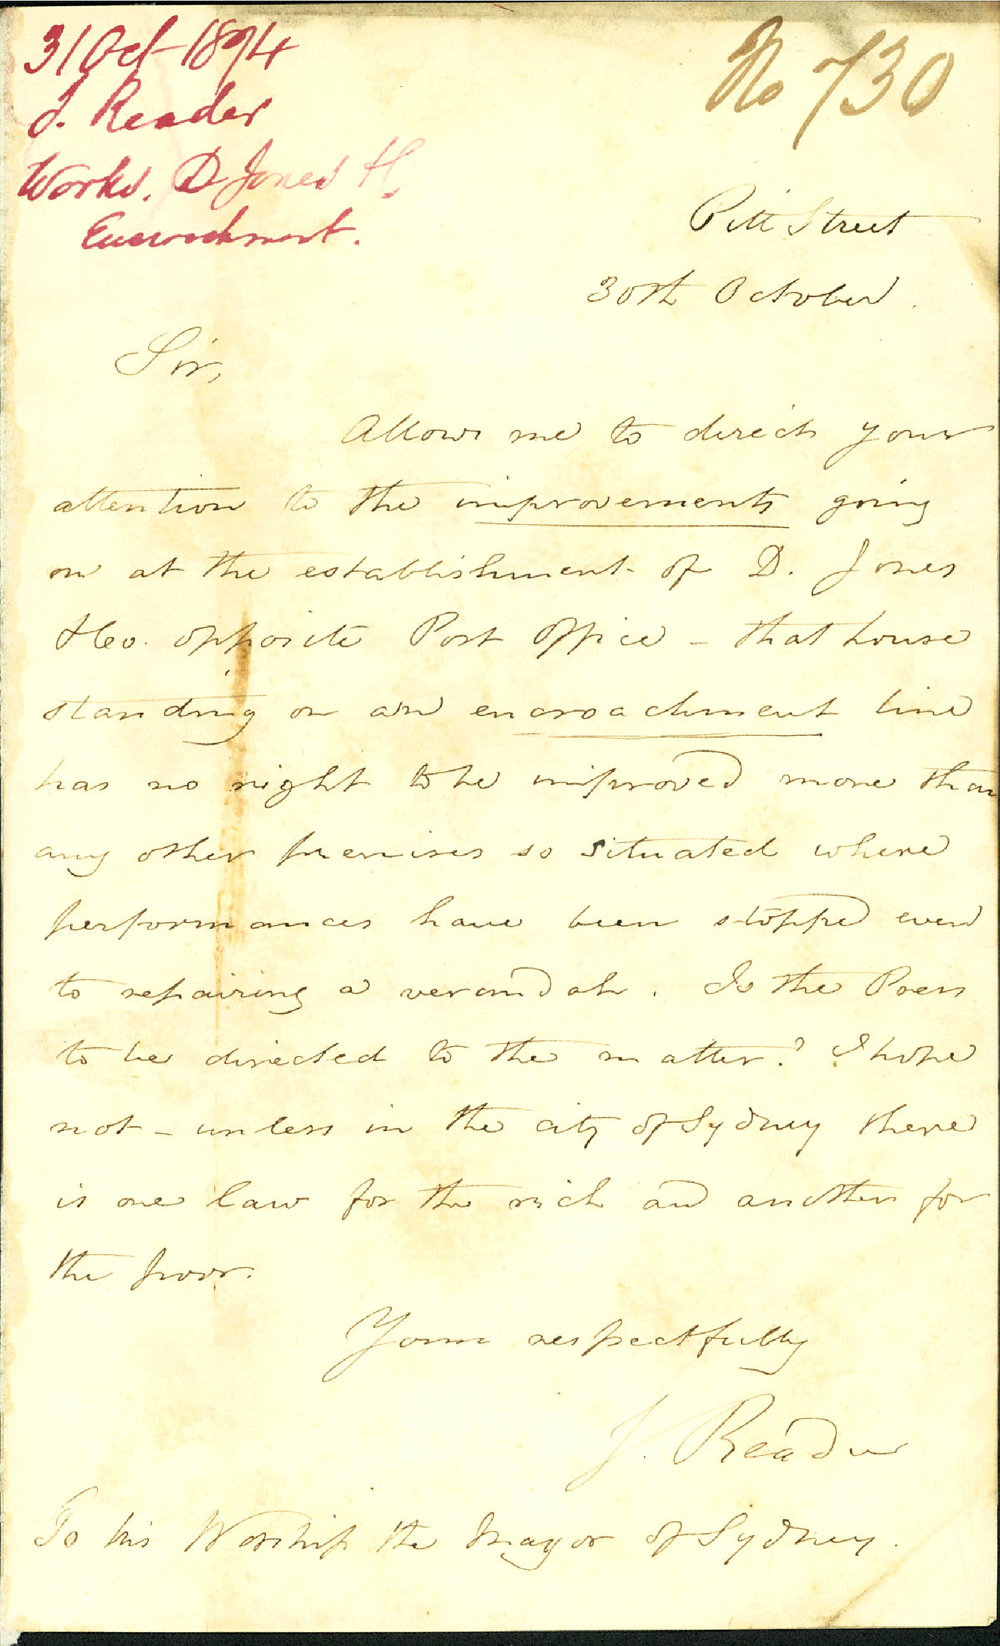 31 Oct 1874
J. Reader
Works. D Jones H.
Encroachment.
No 730
Pitt Street
30th October.
Sir,
Allow me to direct your
attention to the improvements going
on at the establishment of D. Jones
& Co. opposite Post Office - that house
standing on an encroachment line
has no right to be improved more than
any other premises so situated where
performances have been stopped even
to repairing a verandah. Is the Press
to be directed to the matter? I hope
not - unless in the city of Sydney there
is one law for the rich and another for
the poor.
Yours respectfully
J. Reader
To his Worship the Mayor of Sydney.